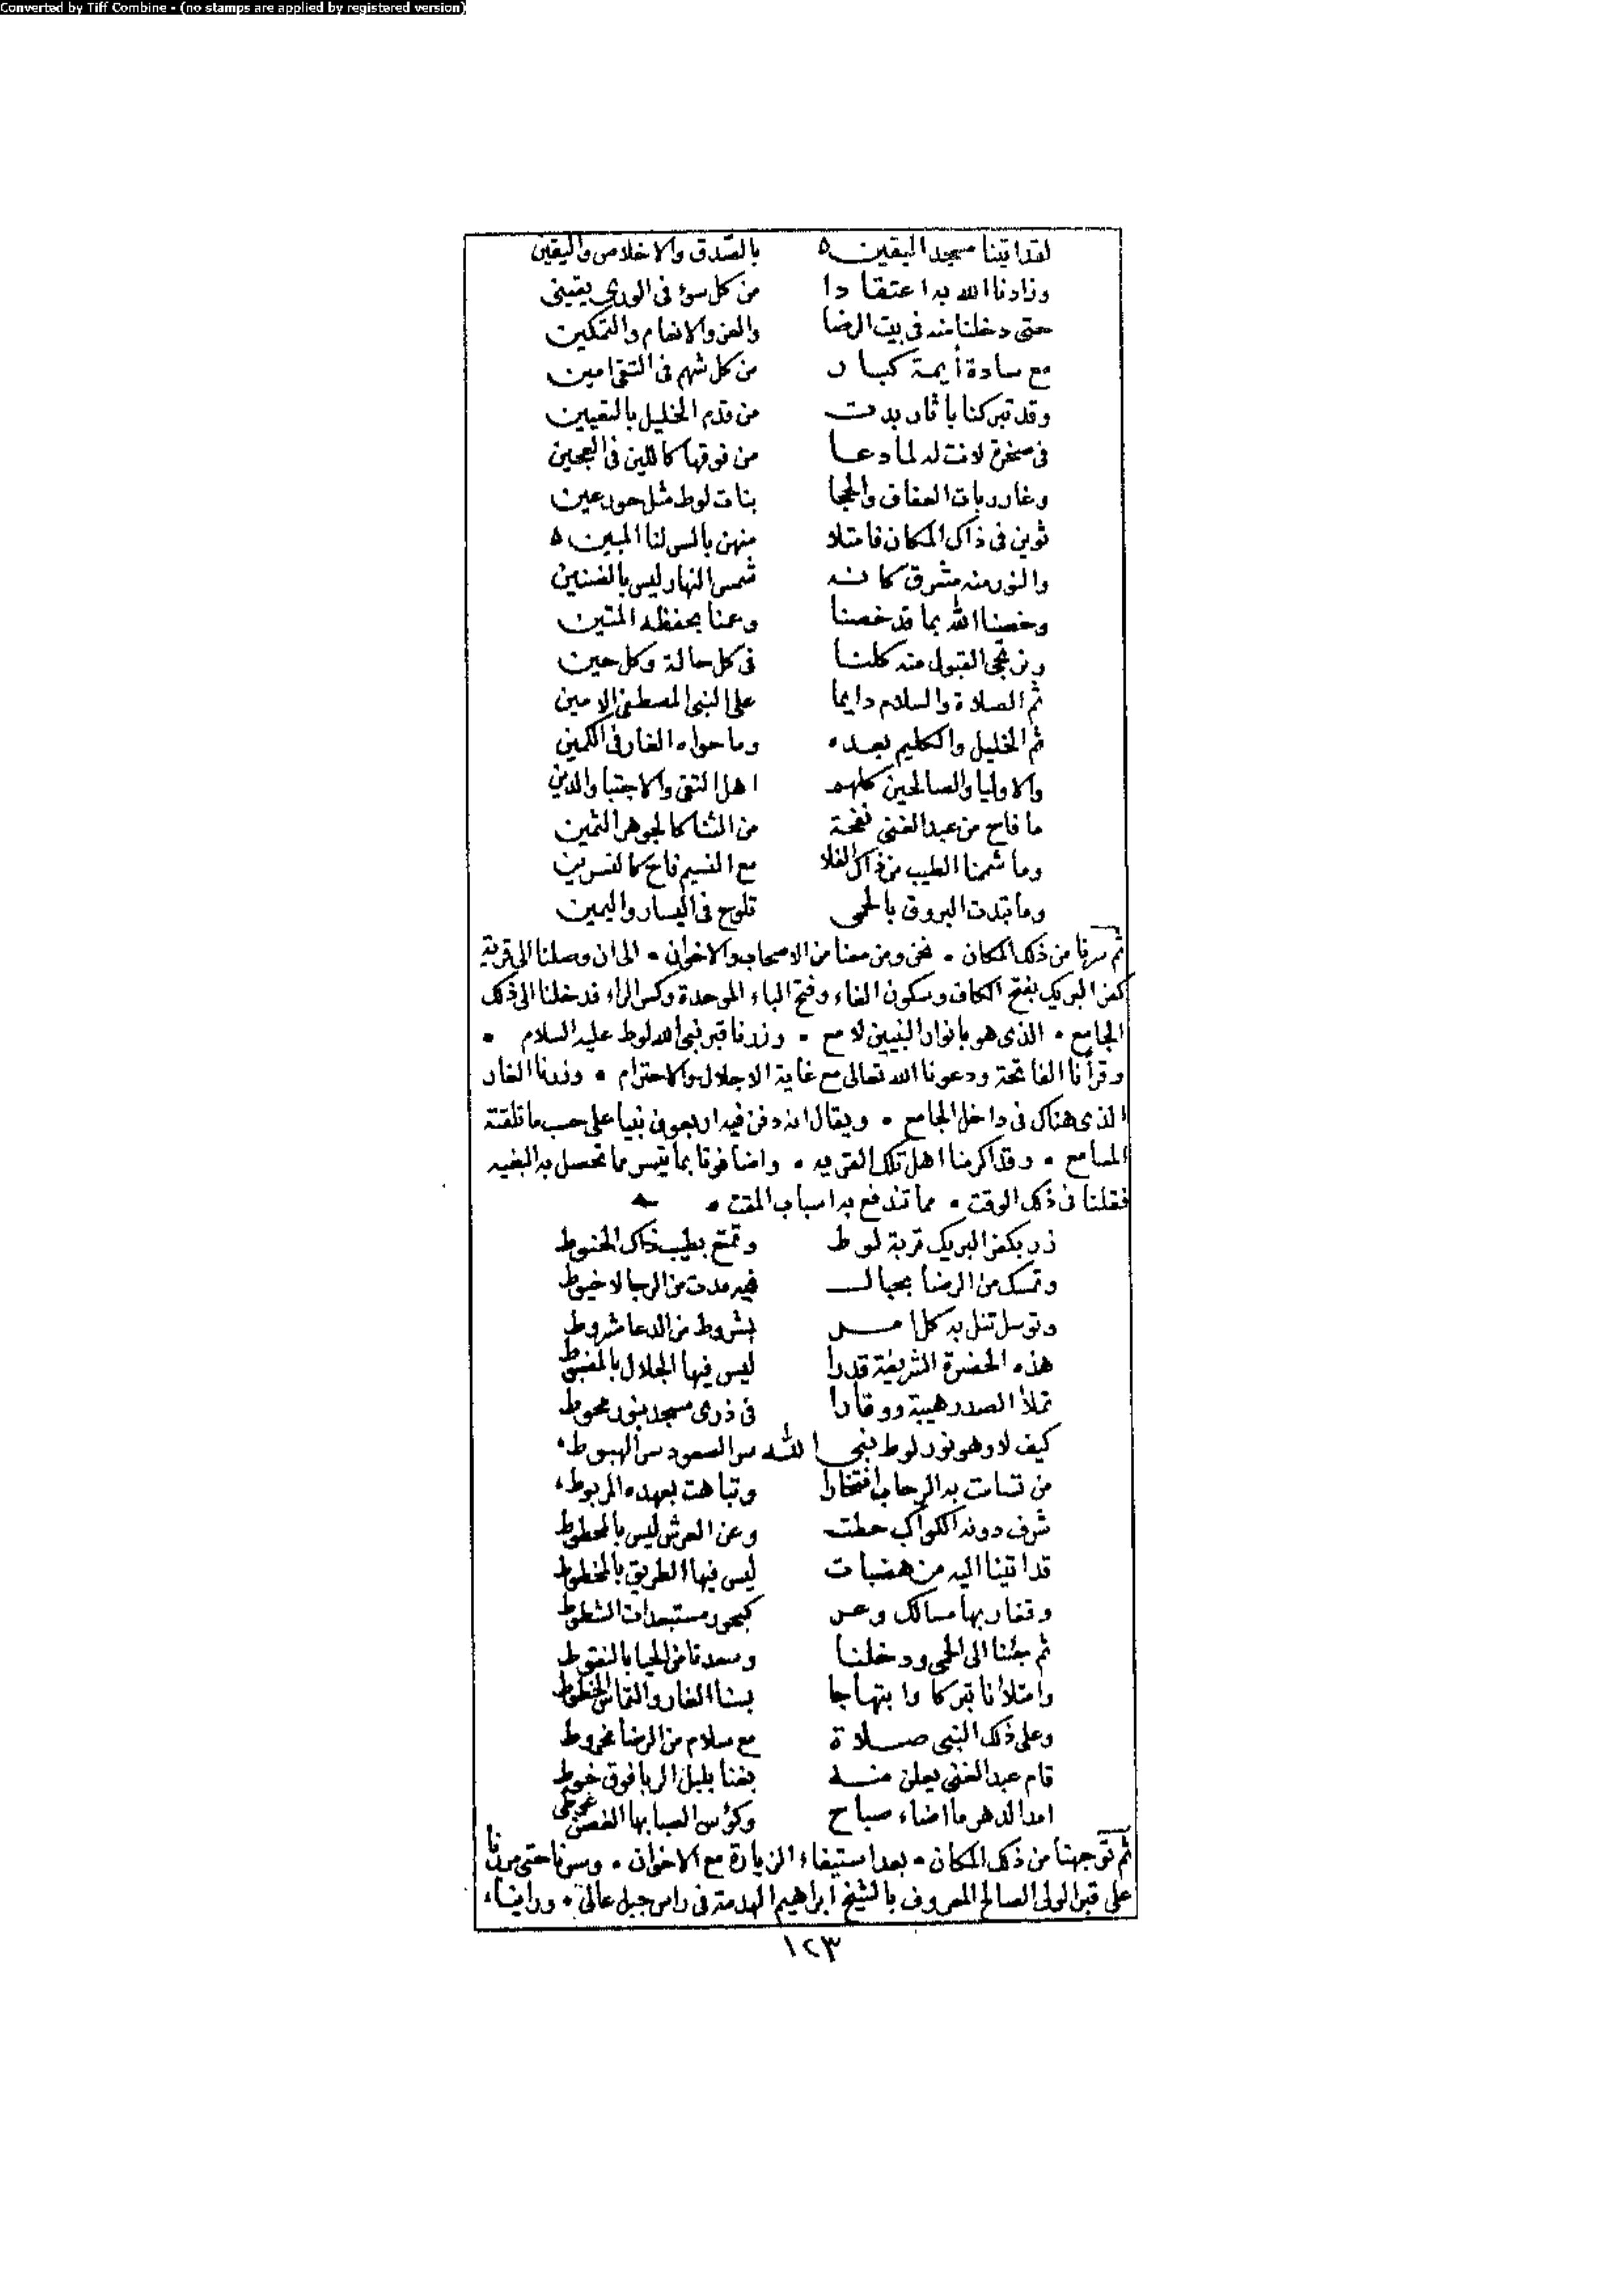 Converted by Tiff Combine - (no stamps are applied by registered version)
لقد اتينا مسجد اليقين بالصدق والاخلاص واليقين
وزادنا الله به اعتقادا من كل سوء فى الورى يقينى
حتى دخلنا منه فى بيت الرضا والعز والانعام والتمكين
مع سادة أيمة كبار من كل شهم فى التقى امين
وقد تبركنا باثار بدت من قدم الخليل بالتعيين
فى صخرة لانت له لما دعا من فوقها كاللين فى العجين
وغار ربات العفاف والحجا بنات لوط مثل حور عين
ثوين فى ذاك المكان فامتلا منهن بالسر لنا المبين
والنور منه مشرق كانه شمس النهار ليس بالضنين
وخصنا الله بما قد خصنا وعمنا بحفظه المتين
ونرتجى القبول منه كلنا فى كل حالة وكل حين
ثم الصلاة والسلام دايما على النبى المصطفى الامين
ثم الخليل والكليم بعده وما حواه الغار فى الكمين
والاوليا والصالحين كلهم اهل التقى والاجتبا والدين
ما فاح من عبد الغنى نفحة من الثنا كالجوهر الثمين
وما شممنا الطيب من ذاك الفلا مع النسيم فاح كالنسرين
وما تبدت البروق بالحمى تلوح فى اليسار واليمين
ثم سرنا من ذلك المكان • نحن ومن معنا من الاصحاب والاخوان • الى ان وصلنا الى قرية
كفر البريك بفتح الكاف وسكون الفاء وفتح الباء الموحدة وكسر الراء فدخلنا الى ذلك
الجامع • الذى هو بانوار النبيين لامع • وزرنا قبر نبى الله لوط عليه السلام •
وقرأنا الفاتحة ودعونا الله تعالى مع غاية الاجلال والاحترام • وزرنا الغار
الذى هناك فى داخل الجامع • ويقال انه دفن فيه اربعون نبيا على حسب ما تلقته
المسامع • وقد اكرمنا اهل تلك القريه • واضافونا بما تيسر مما تحصل به البغيه
فقلنا فى ذلك الوقت • مما تندفع به اسباب المقت •
زر بكفر البريك تربة لوط وتمتع بطيب ذاك الحنوط
وتمسك من الرضا بحبال فيه مدت من الرجا لا خيوط
وتوسل تنل به كل امر بشروط من الدعا مشروط
هذه الحضرة الشريفة قدرا ليس فيها الجلال بالمضبوط
تملأ الصدر هيبة ووقارا فى ذرى مسجد بنور محوط
كيف لا وهو نور لوط نبى الله سر الصعود سر الهبوط
من تسامت به الرحاب افتخارا وتباهت بعهده المربوط
شرف دونه الكواكب حطت وعن العرش ليس بالمحطوط
قد اتينا اليه من هضبات ليس فيها الطريق بالمخطوط
وقفار بها مسالك وعر كبحور مستبعدات الشطوط
ثم جئنا الى الحمى ودخلنا وسعدنا من الحيا بالنقوط
وامتلأنا تبركا وابتهاجا بسنا الغار والتماس الخطوط
وعلى ذلك النبى صلاة مع سلام من الرضا مخروط
قام عبد الغنى يعلن منه بغنا بلبل الربا فوق خوط
امد الدهر ما اضاء صباح وكؤس الصبا بها الغصن
ثم توجهنا من ذلك المكان • بعد استيفاء الزيارة مع الاخوان • وسرنا حتى مررنا
على قبر الولى الصالح المعروف بالشيخ ابراهيم الهدمة فى راس جبل عالى •
١٢٣